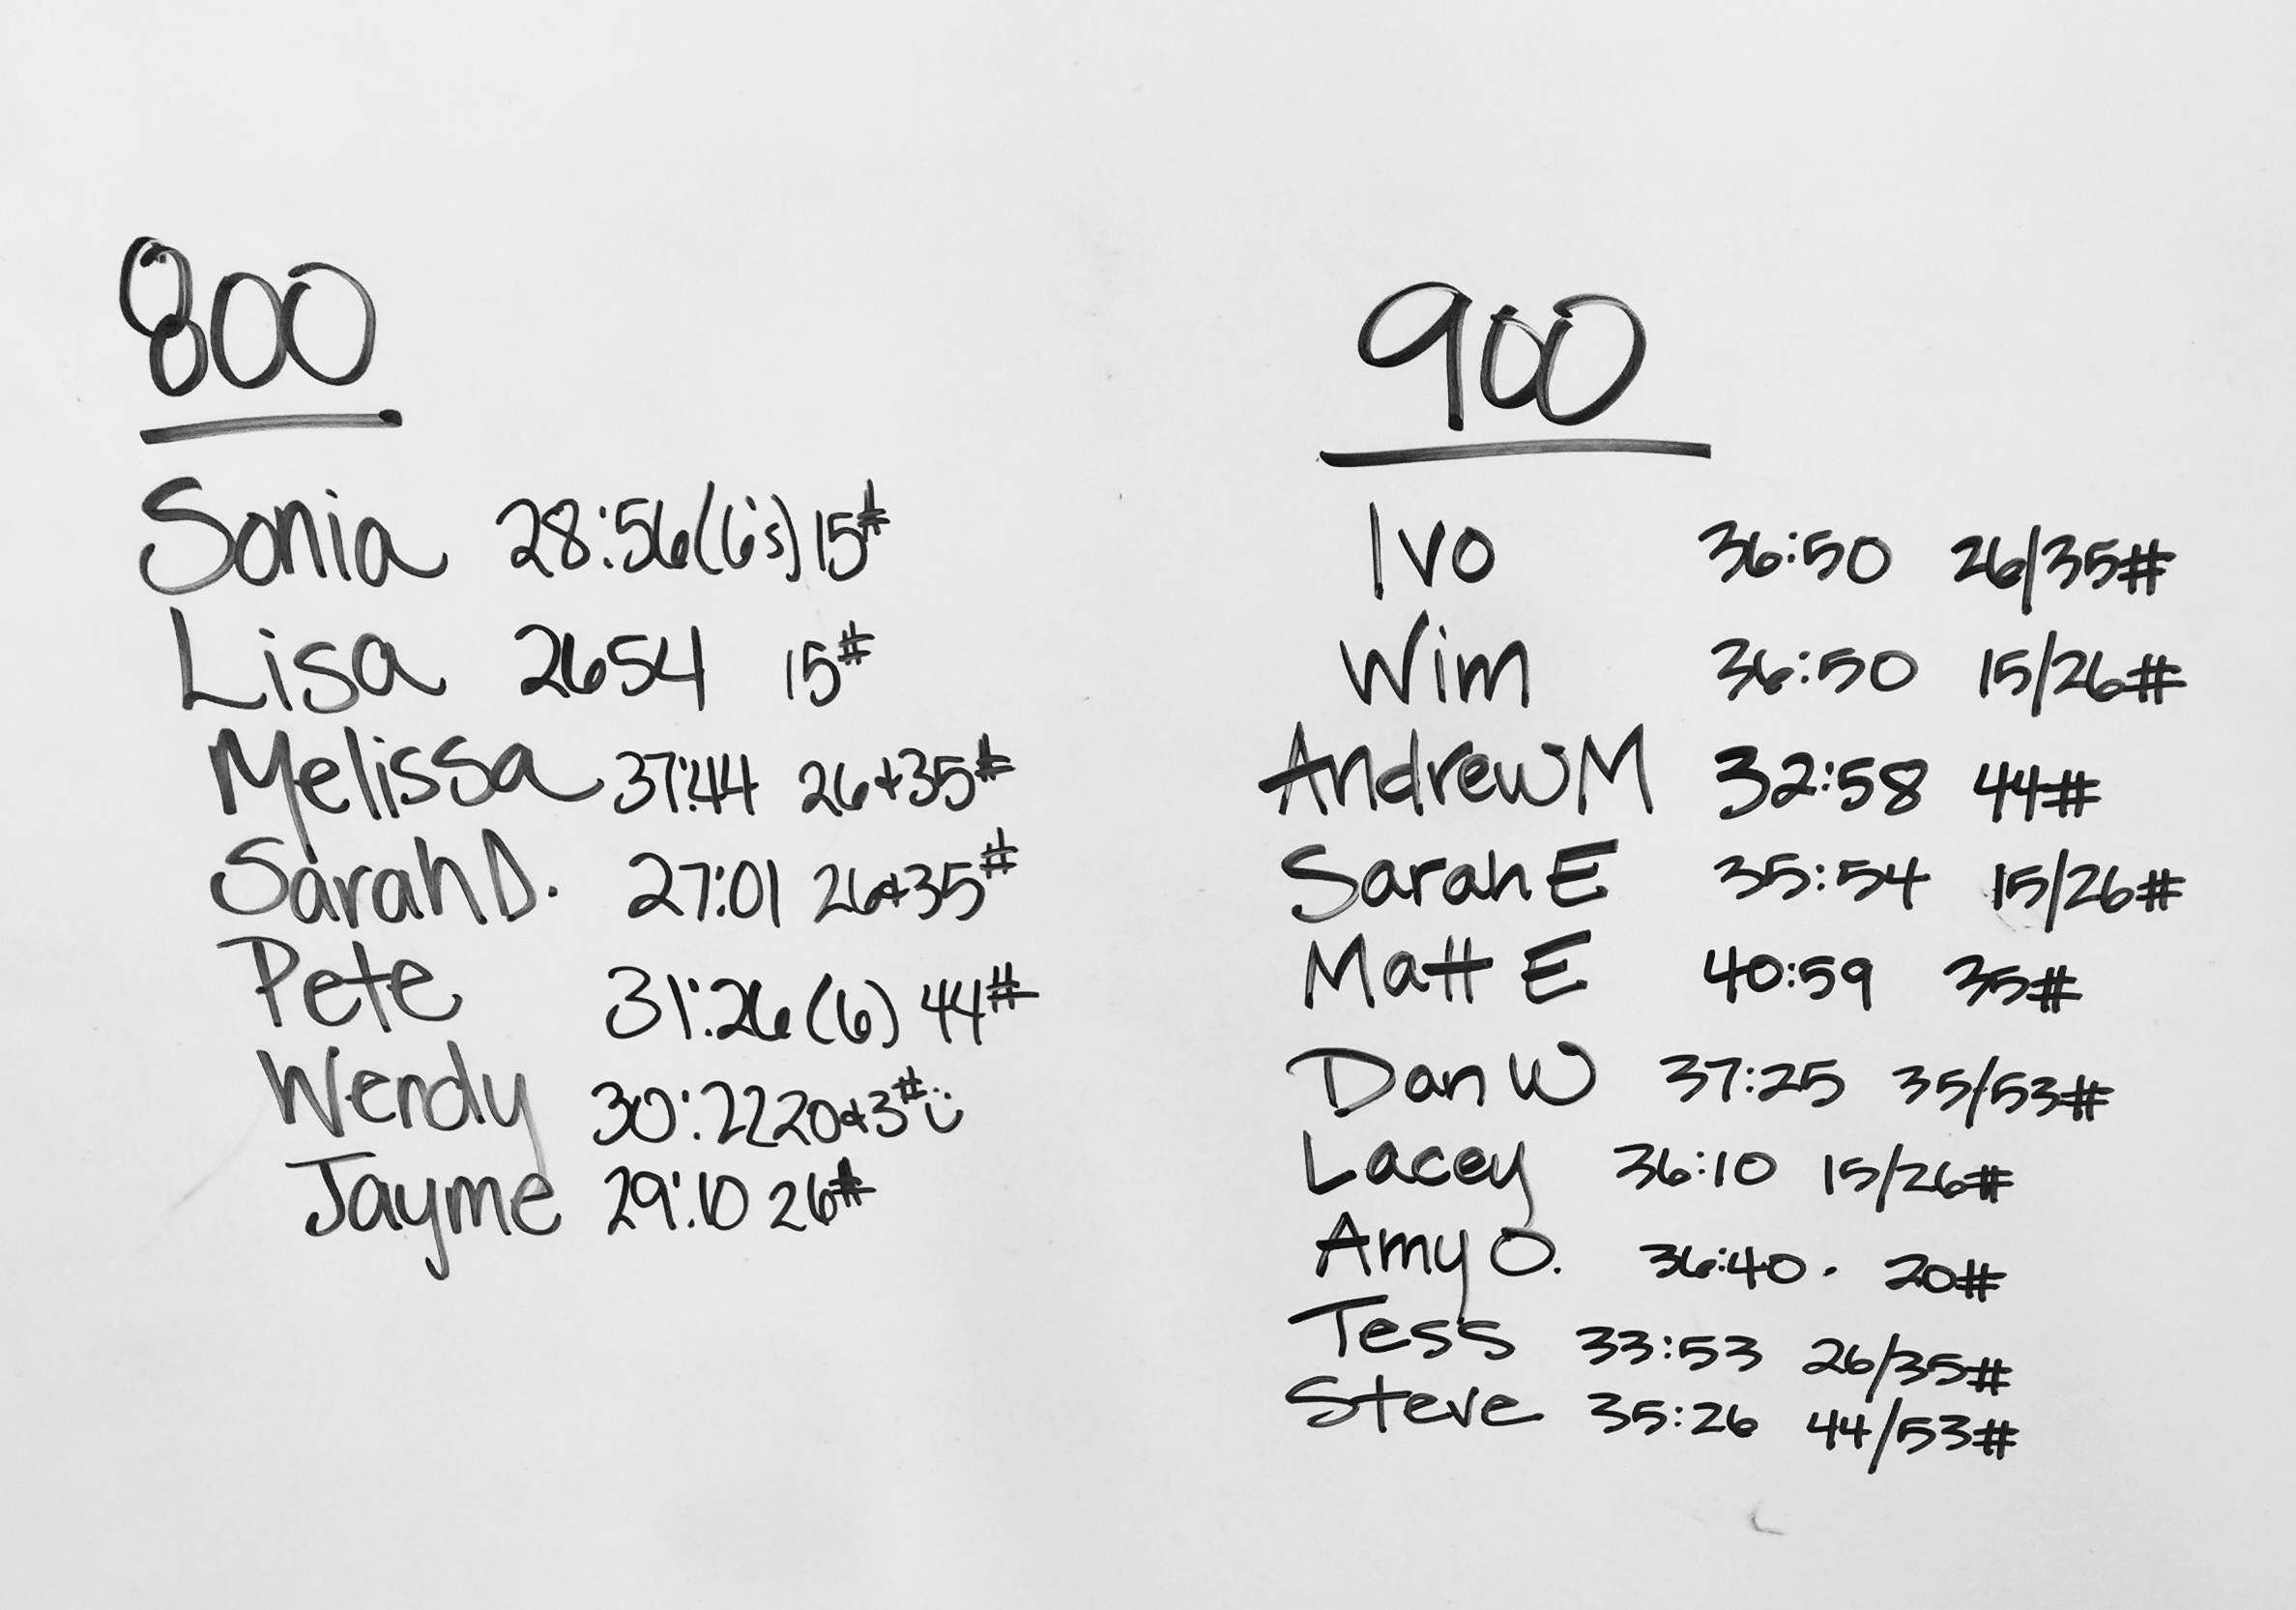 800
Sonia 28:56 (6's) 15#
Lisa 2654 15#
Melissa 37:44 26+35#
Sarah D. 27:01 26+35#
Pete 31:26 (6) 44#
Wendy 30:22 20+3# :)
Jayme 29:10 26#
900
Ivo 36:50 26/35#
Wim 36:50 15/26#
Andrew M 32:58 44#
Sarah E 35:54 15/26#
Matt E 40:59 35#
Dan W 37:25 35/53#
Lacey 36:10 15/26#
Amy O. 36:40. 20#
Tess 33:53 26/35#
Steve 35:26 44/53#